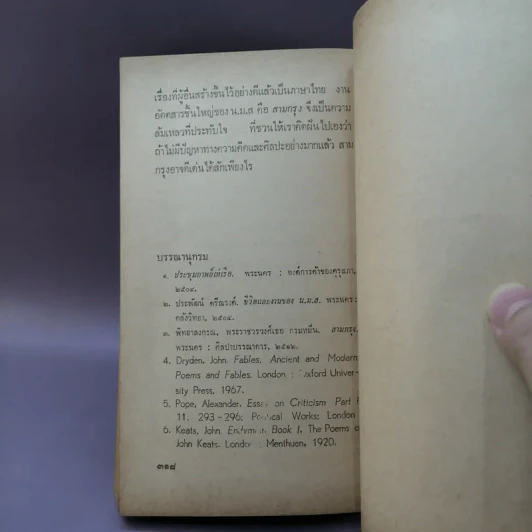 เรื่องที่ผู้อื่นสร้างขึ้นไว้อย่างดีแล้วเป็นภาษาไทย งาน
อัตตสารชิ้นใหญ่ของ น.ม.ส คือ สามกรุง จึงเป็นความ
ล้มเหลวที่ประทับใจ ที่ชวนให้เราคิดฝันไปเองว่า
ถ้าไม่มีปัญหาทางความคิดและศิลปะอย่างมากแล้ว สาม
กรุงอาจดีเด่นได้สักเพียงไร
บรรณานุกรม
๑. ประชุมกาพย์เห่เรือ. พระนคร : องค์การค้าของคุรุสภา,
๒๕๐๔.
๒. ประพัฒน์ ตรีณรงค์. ชีวิตและงานของ น.ม.ส. พระนคร :
คลังวิทยา, ๒๕๐๔.
๓. พิทยาลงกรณ, พระราชวรวงศ์เธอ กรมหมื่น. สามกรุง.
พระนคร : ศิลปาบรรณาคาร, ๒๕๑๒.
4. Dryden, John. Fables, Ancient and Modern
Poems and Fables. London : Oxford Univer-
sity Press, 1967.
5. Pope, Alexander. Essay on Criticism Part
11, 293-296; Poetical Works; London
6. Keats, John. Endymion, Book I, The Poems of
John Keats. London : Menthuen, 1920.
๓๑๘